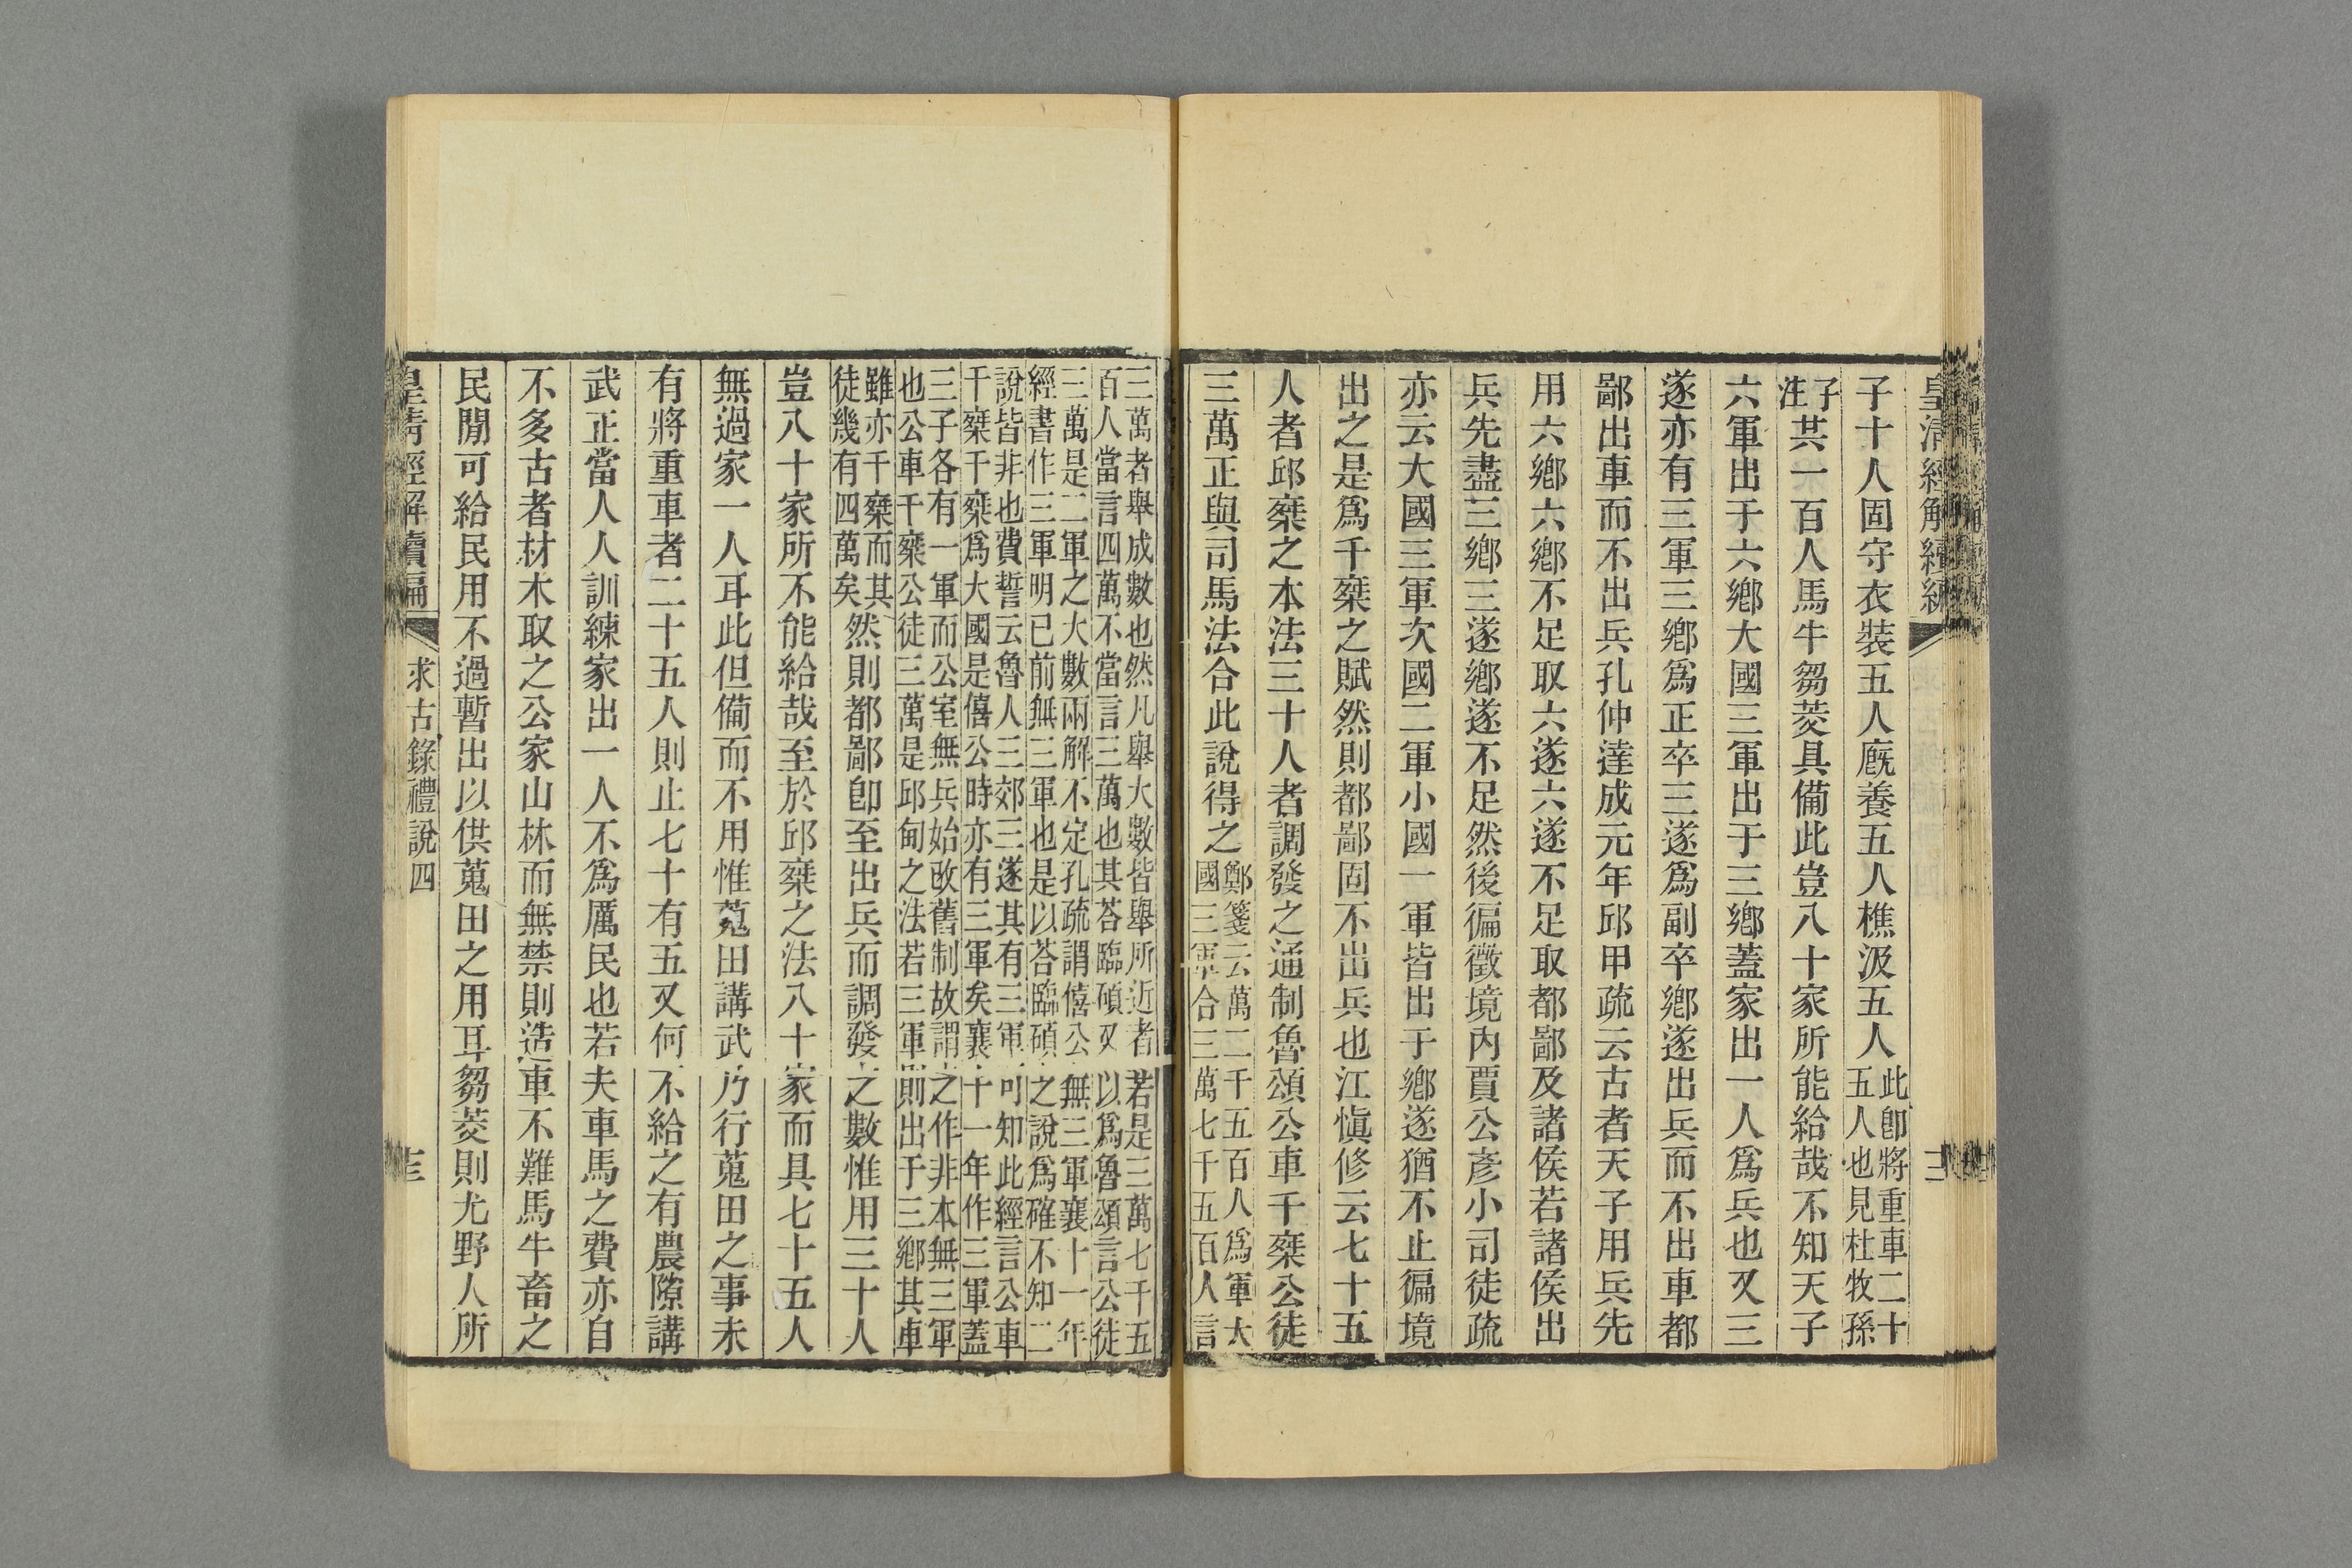 皇清經解續編
子十人固守衣裝五人廐養五人樵汲五人此卽將重車二十五人也見杜牧孫
子注共一百人馬牛芻茭具備此豈八十家所能給哉不知天子
六軍出于六鄕大國三軍出于三鄕蓋家出一人爲兵也又三
遂亦有三軍三鄕爲正卒三遂爲副卒鄕遂出兵而不出車都
鄙出車而不出兵孔仲達成元年邱甲疏云古者天子用兵先
用六鄕六鄕不足取六遂六遂不足取都鄙及諸侯若諸侯出
兵先盡三鄕三遂鄕遂不足然後徧徵境內賈公彥小司徒疏
亦云大國三軍次國二軍小國一軍皆出于鄕遂猶不止徧境
出之是爲千椉之賦然則都鄙固不出兵也江愼修云七十五
人者邱椉之本法三十人者調發之通制魯頌公車千椉公徒
三萬正與司馬法合此說得之鄭箋云萬二千五百人爲軍大國三軍合三萬七千五百人言
三萬者舉成數也然凡舉大數皆舉所近者若是三萬七千五
百人當言四萬不當言三萬也其荅臨碩又以爲魯頌言公徒
三萬是二軍之大數兩解不定孔疏謂僖公無三軍襄十一年
經書作三軍明已前無三軍也是以荅臨碩之說爲確不知二
說皆非也費誓云魯人三郊三遂其有三軍可知此經言公車
千椉千椉爲大國是僖公時亦有三軍矣襄十一年作三軍蓋
三子各有一軍而公室無兵始改舊制故謂之作非本無三軍
也公車千椉公徒三萬是邱甸之法若三軍則出于三鄕其車
雖亦千椉而其徒幾有四萬矣然則都鄙卽至出兵而調發之數惟用三十人
豈八十家所不能給哉至於邱椉之法八十家而具七十五人
無過家一人耳此但備而不用惟蒐田講武乃行蒐田之事未
有將重車者二十五人則止七十有五又何不給之有農隙講
武正當人人訓練家出一人不爲厲民也若夫車馬之費亦自
不多古者材木取之公家山林而無禁則造車不難馬牛畜之
民閒可給民用不過暫出以供蒐田之用耳芻茭則尤野人所
皇淸經解續編 求古錄禮說四